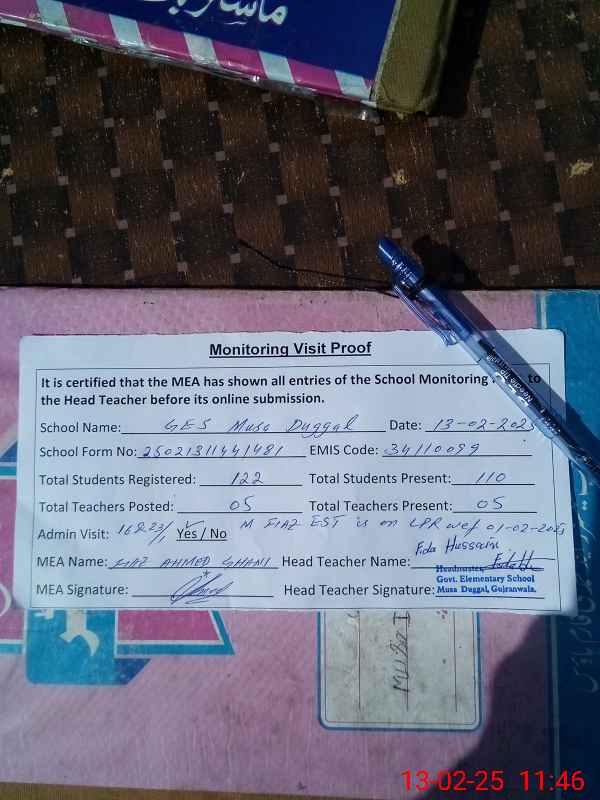 ماسٹر
Monitoring Visit Proof
It is certified that the MEA has shown all entries of the School Monitoring to
the Head Teacher before its online submission.
School Name: GES Musa Duggal Date: 13-02-2025
School Form No: 25021311441481 EMIS Code: 34110099
Total Students Registered: 122 Total Students Present: 110
Total Teachers Posted: 05 Total Teachers Present: 05
Admin Visit: 16&23/1 Yes / No M FIAZ EST is on LPR wef 01-02-2025
Fida Hussain
MEA Name: FIAZ AHMED GHANI Head Teacher Name:
Headmaster
Govt. Elementary School
MEA Signature: Head Teacher Signature: Musa Duggal, Gujranwala.
13-02-25 11:46